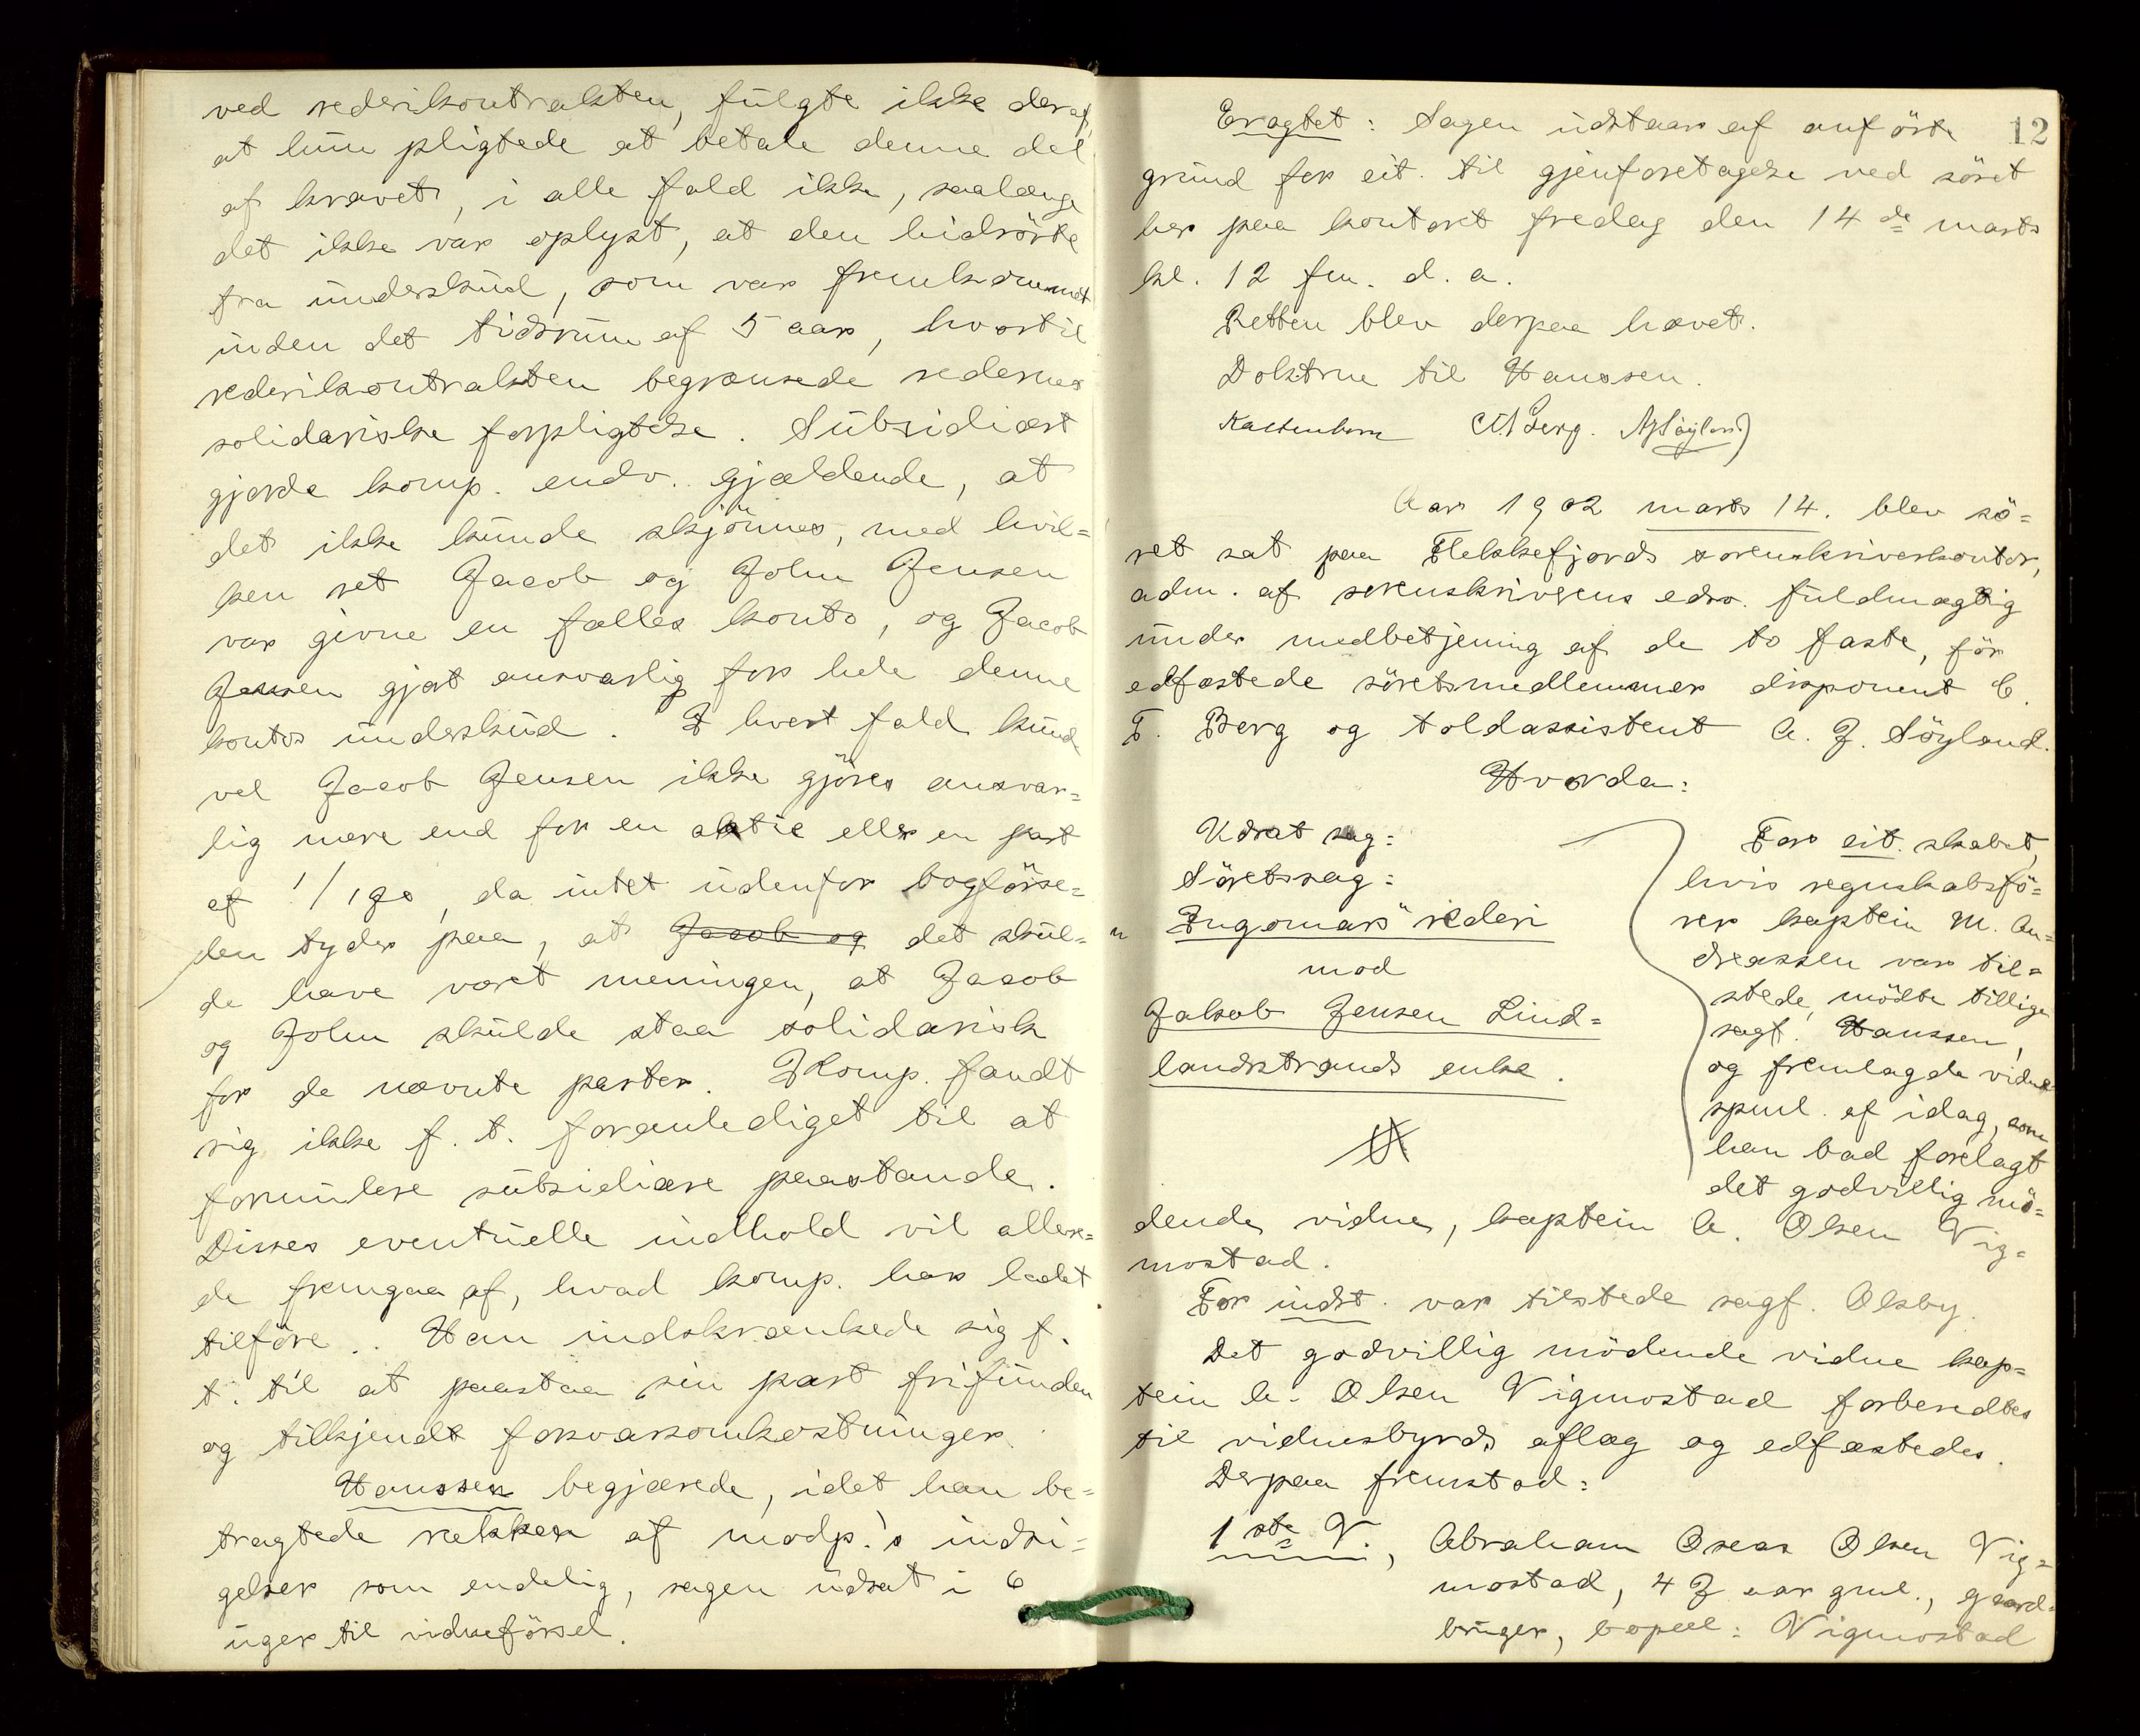 ved rederikontrakten, fulgte ikke deraf,
at hun pligtede at betale denne del
af kravet, i alle fald ikke, saalænge
det ikke var oplyst, at den hidrörte
fra underskud, som var fremkommet
inden det tidsrum af 5 aar, hvortil
rederikontrakten begrænsede redernes
solidariske forpligtelse. Subsidiært
gjorde komp. endv. gjældende, at
det ikke kunde skjönnes, med hvil=
ken ret Jacob og John Jensen
var givne en fælles konto, og Jacob
Jensen gjort ansvarlig for hele denne
kontos underskud. I hvert fald kunde
vel Jacob Jensen ikke gjöres ansvar=
lig mere end for en aktie eller en part
af 1/190, da intet udenfor bogförse=
den tyder paa, at Jacob og det skul=
de have været meningen, at Jacob
og John skulde staa solidarisk
for de nævnte parter. Komp. fandt
sig ikke f. t. foranlediget til at
formulere subsidiære paastande.
Disses eventuelle indhold vil allere=
de fremgaa af, hvad komp. har ladet
tilföre. Han indskrænkede sig f.
t. til at paastaa sin part frifunden
og tilkjendt forsvarsomkostninger.
Hanssen begjærede, idet han be=
tragtede rækken af modp.'s indsi=
gelser som endelig, sagen udsat i 6
uger til vidneförsel.
12
Eragtet: Sagen udstaar af anförte
grund for cit. til gjenforetagelse ved söret
her paa kontoret fredag den 14de marts
kl. 12 fm. d. a.
Retten blev derpaa hævet.
Doktrne til Hanssen.
Kaltenborn CF Berg. AJSöyland
Aar 1902 marts 14. blev sö=
ret sat paa Flekkefjords sorenskriverkontor,
adm. af sorenskriverens edsv. fuldmægtig
under medbetjening af de to faste, för
edfæstede söretsmedlemmer disponent C.
F. Berg og toldassistent A. J. Söyland.
Hvorda:
Udsat sag:
Söretssag:
"Ingomars" rederi
mod
Jakob Jensen Lind=
landstrands enke.
For cit. skabet,
hvis regnskabsfö=
rer kaptein M. An=
dreassen var til=
stede, mödte tillige
sagf. Hanssen,
og fremlagde vidne
spml. af idag, som
han bad forelagt
det godvillig mö=
dende vidne, kaptein A. Olsen Vig=
mostad.
For indst. var tilstede sagf. Olsby.
Det godvillig mödende vidne kap=
tein A. Olsen Vigmostad forberedtes
til vidnesbyrds aflæg og edfæstedes.
Derpaa fremstod:
1ste V., Abraham Oseas Olsen Vig=
mostad, 47 aar gml., gaard=
bruger, bopæl: Vigmostad